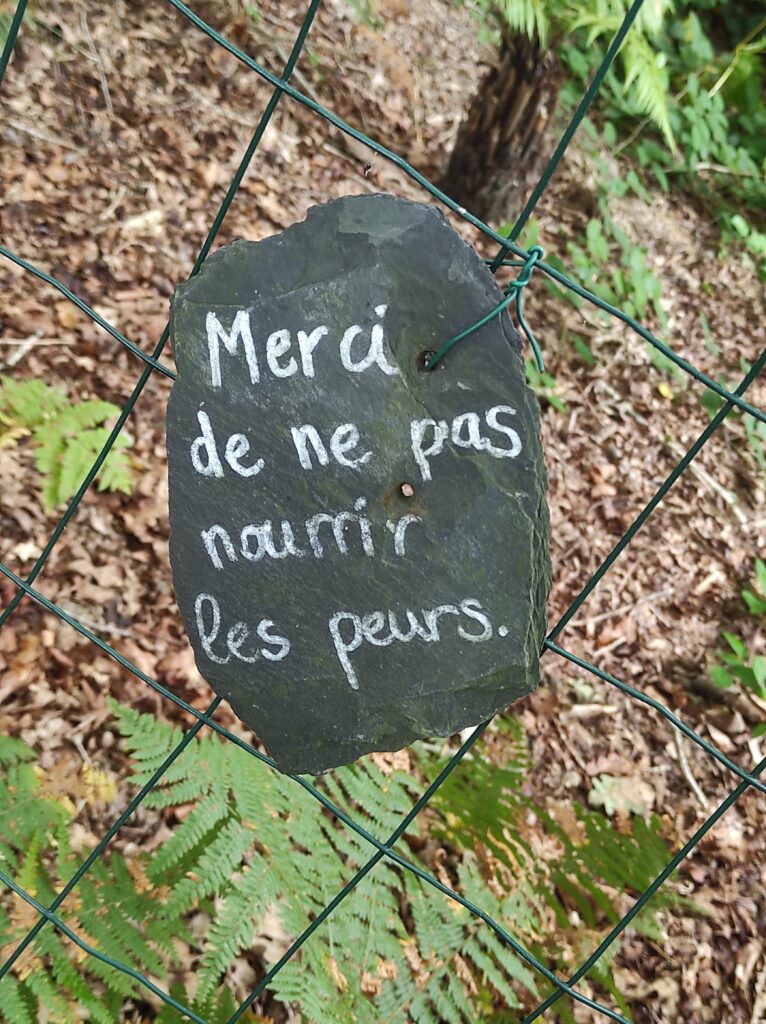 Merci
de ne pas
nourrir
les peurs.